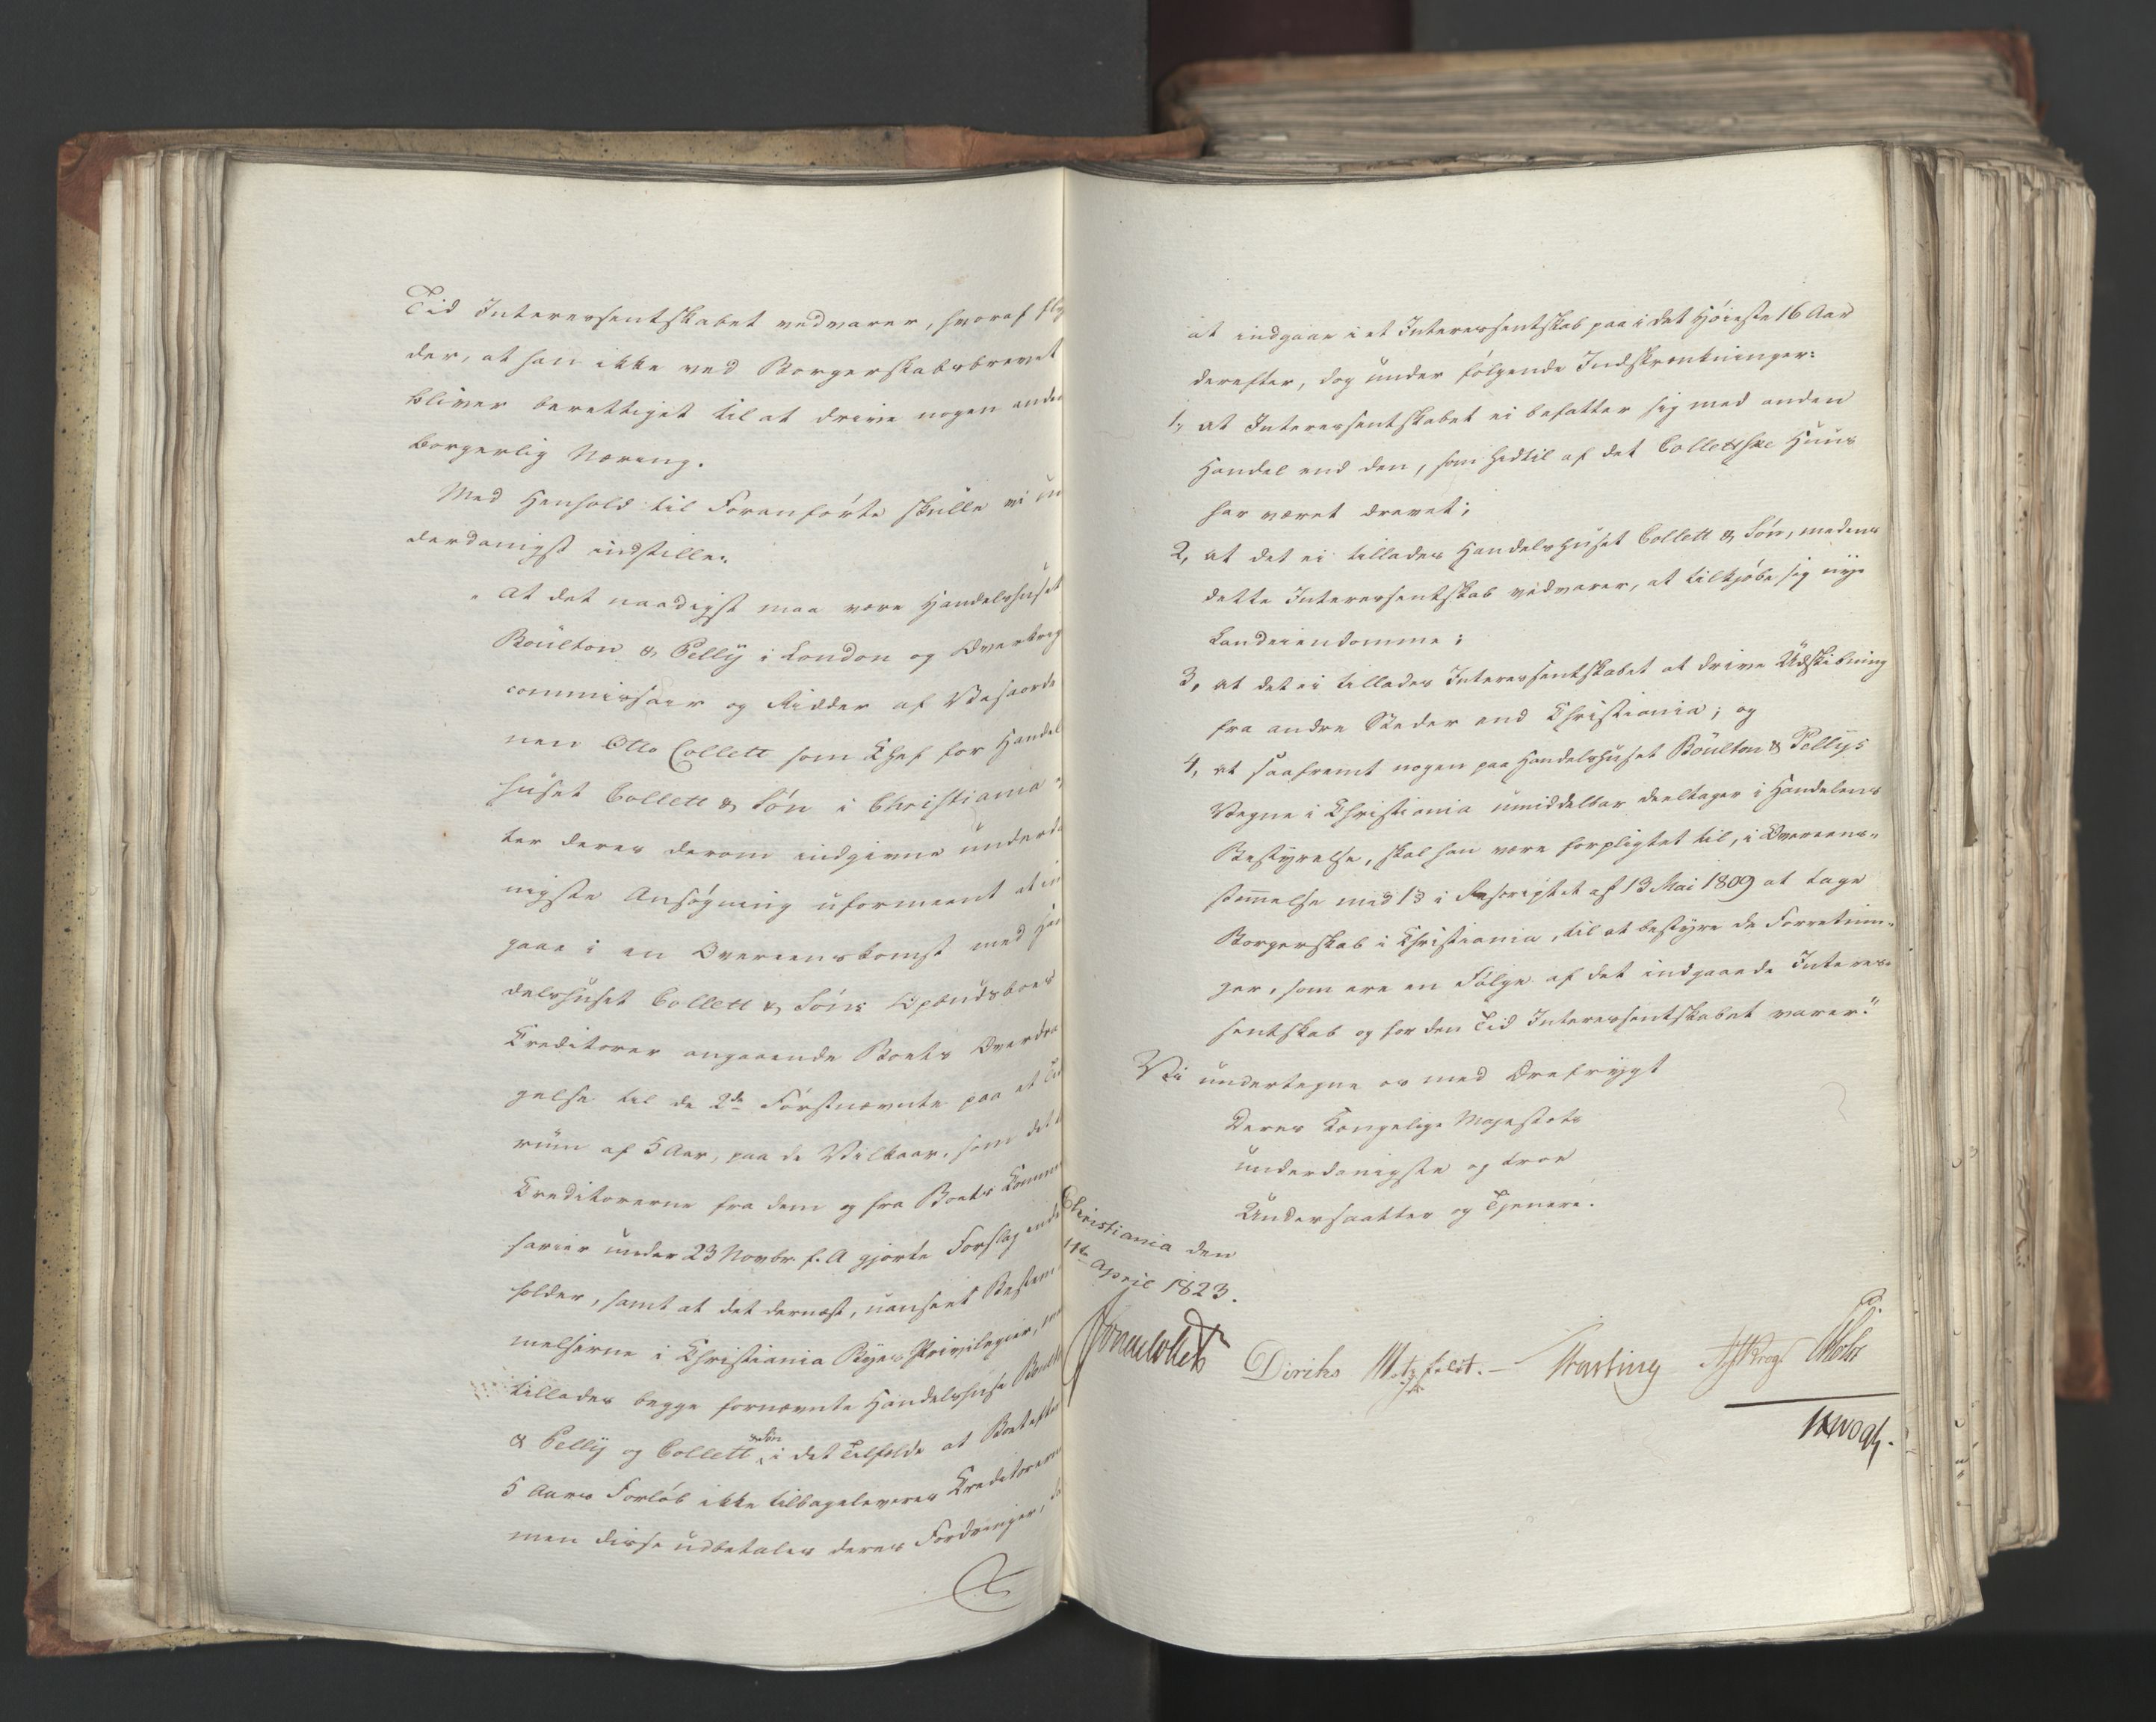 Tid Interessentskabet vedvarer, hvoraf fly
der, at han ikke ved Borgerskabsbrevet
bliver berettiget til at drive nogen anden
borgerlig Næring.
Med Henhold til Foranførte skulle vi un
derdanigst indstille:
" at det naadigst maa være Handelshuset
Boulton & Pelly i London og Overkrigs
commissair og Ridder af Vasaorde
nen Otto Collett som Chef for Handels
huset Collett & Søn i Christiania
ter deres derom indgivne underda
nigste Ansøgning uformeent at ind
gaae i en Overeenskomst med Han
delshuset Collett & Søns Opbudsboes
Creditorer angaaende Boets Overdra
gelse til de 2de Førstnævnte paa et Tids
rum af 5 Aar, paa de Vilkaar, som det til
Creditorerne fra dem og fra Boets Commis
sarier under 23 Novbr. f. A gjorte Forslag inde
holder, samt at det dernæst, uanseet Bestem
melserne i Christiania Byes Privilegier, maa
tillades begge fornævnte Handelshuse Boulton
& Pelly og Collett & Søn, i det Tilfælde at Boet efter
5 Aars Forløb ikke tilbageleveres Creditorerne
men disse udbetales deres Fordringer,
at indgaae i et Interessentskab paa i det Høieste 16 Aar
derefter, dog under følgende Indskrænkninger:
1, at Interessentskabet ei befatter sig med anden
Handel end den, som hidtil af det Collettske Huus
har været drevet;
2, at det ei tillades Handelshuset Collett & Søn, medens
dette Interessentskab vedvarer, at tilkjøbe sig nye
Landeiendomme;
3, at det ei tillades Interessentskabet at drive Udskibning
fra andre Steder end Christiania; og
4, at saafremt nogen paa Handelshuset Boulton & Pellys
Vegne i Christiania umiddelbar deeltager i Handelens
Bestyrelse, skal han være forpligtet til, i Overeens-
stemmelse med 13 i Rescriptet af 13 Mai 1809 at tage
Borgerskab i Christiania, til at bestyre de Forretnin-
ger, som ere en Følge af det indgaaede Interes-
sentskab og for den Tid Interessentskabet varer."
Vi undertegne os med Ærefrygt
Deres Kongelige Majestæts
underdanigste og troe
Undersaatter og Tjenere.
Christiania den
April 1823.
Jonas Collett Diriks Motzfeldt. Krog Holst